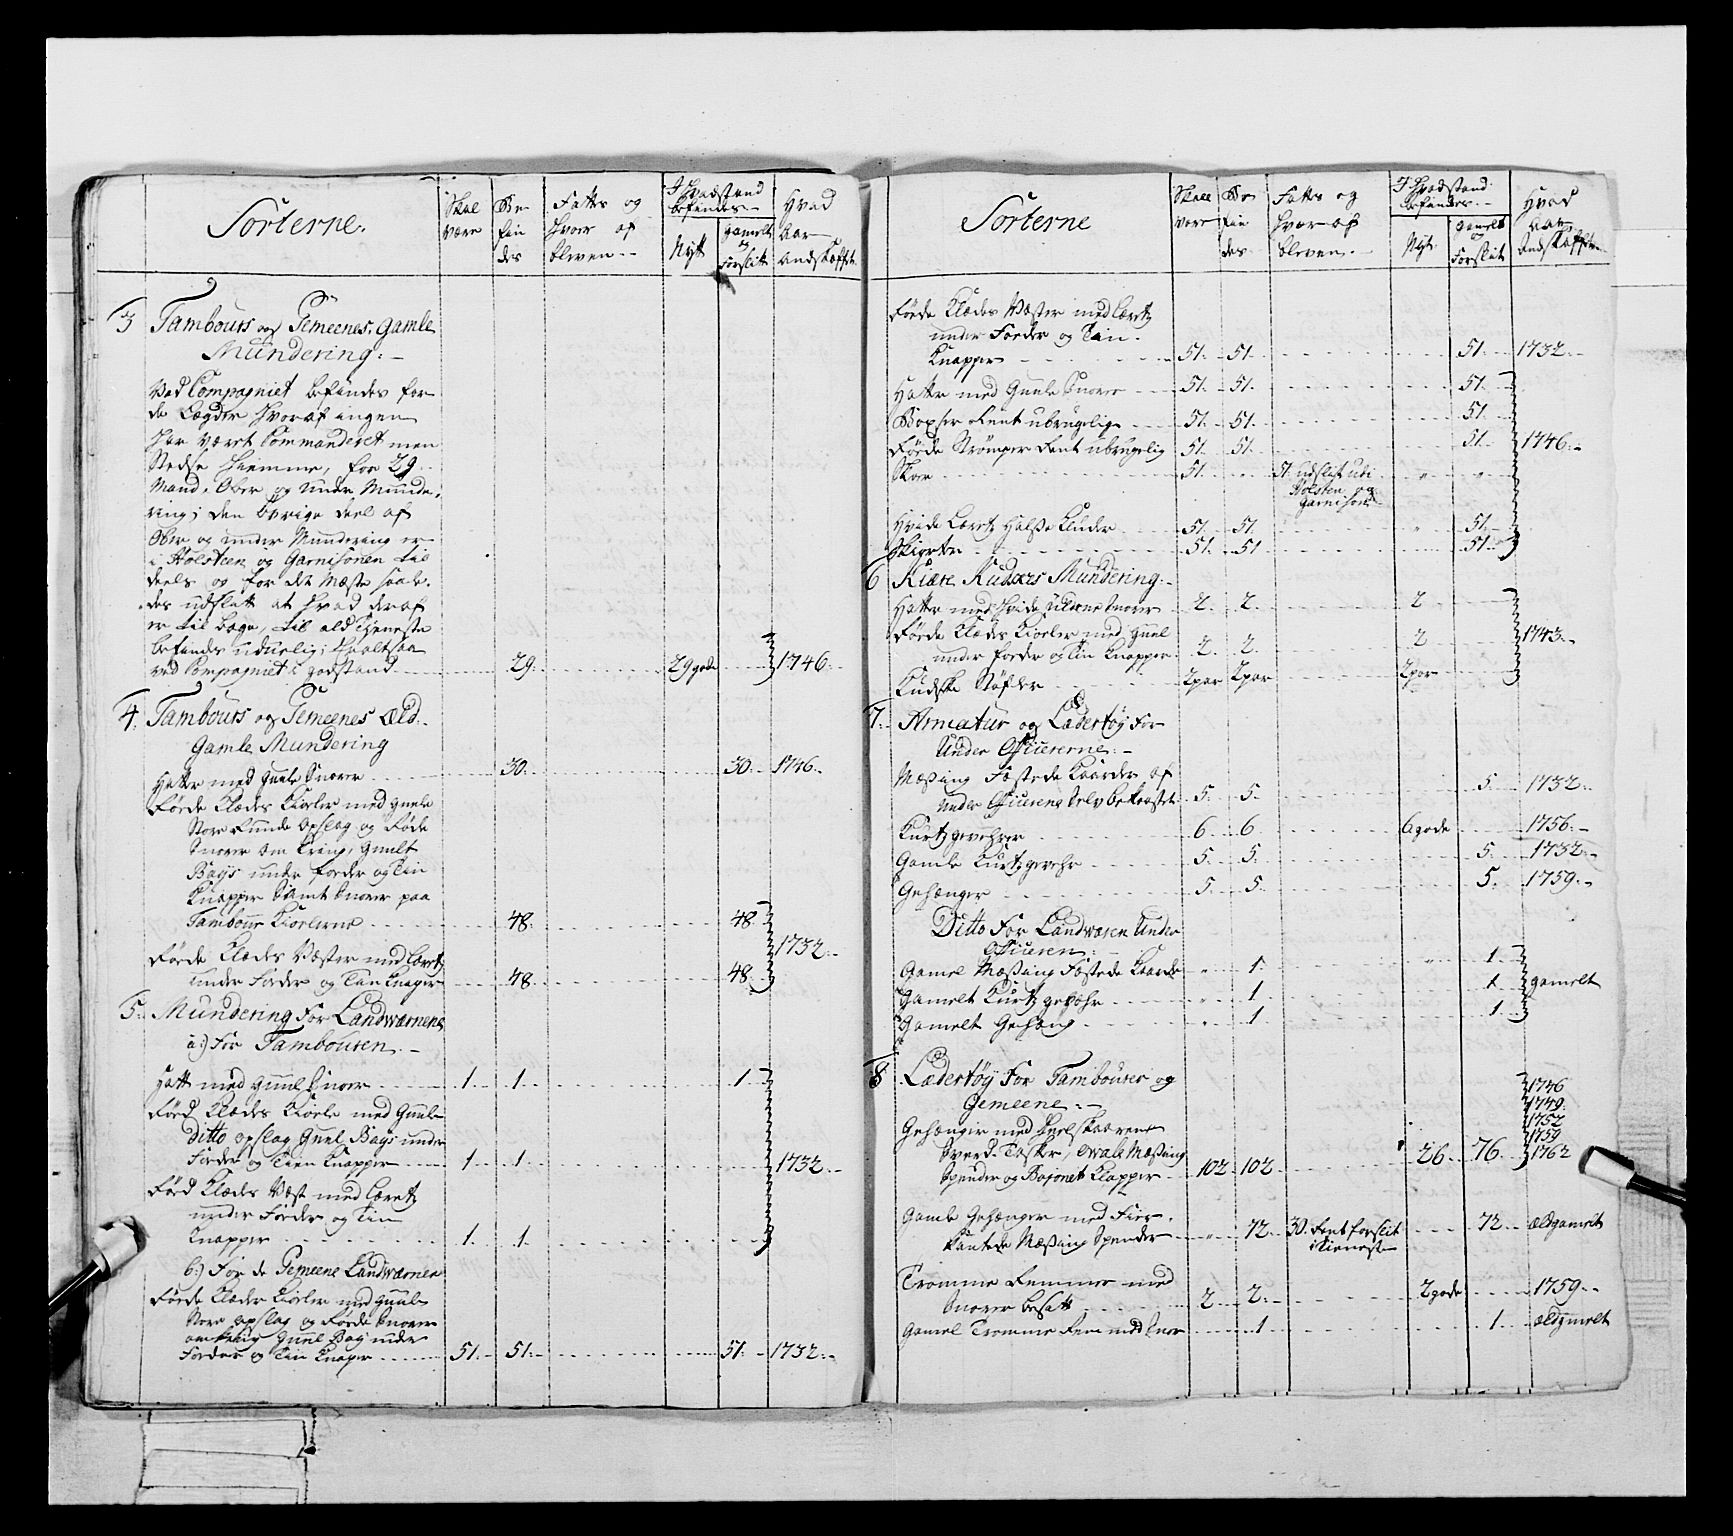 Sorterne.
Skal være
Befindes
Fattes og hvor af bleven
I hvadstand befindes
Nytt
gamelt og forslitt
Hvad Aar Andskaffet
3 Tambours og Gemeenes gamle
Mundering.
Ved Compagniet befindes for
de Lægder hvoraf ingen
har været Commanderet men
stedse hiemme, for 29
Mand, Ober og under Munde-
ring; den övrige deel af
Ober og under Mundering er
i Holsteen og Garnisonen til
deels og for det Meste saale-
des udslitt at hvad deraf
er tilbage, til ald Tieneste
befindes udue͏lig; Haves saa
ved Compagniet i god stand 29. 29 gode 1746.
4. Tambours og Gemeenes Æld-
Gamle Mundering
Hatte med guule Snorer 30. 30. 1746.
Röde Klædes Kioler med guule
Store Runde Opslag og Röde
Snorer omkring, guult
Bays under foeder og Tin
Knapper samt Snorer paa
Tambour Kiolerne 48. 48.
Röde Klædes Vester med Læretz
Under Foeder og Tin Knaper 48 48. 1732.
5. Mundering for Landværnene
a:) For Tambouren.
Hatt med guul Snor 1. 1. 1
Röd Klædes Kiole med Guule
Ditto opslag Guul Bays under
Foeder og Tien Knapper 1. 1. 1732.
Röd Klædes Vest med Læretz
under Foeder og Tin
Knapper 1. 1.
b:) For de Gemeene Landværner
Röde Klæder Kioler med guule
Store opslag og Röde Snorer
omkring Guul Bay under
Foeder og Tin Knaper 51. 51. 51. 1732.
Sorterne
Skall være
Befindes
Fattes og hvor af bleven
I hvadstand befindes
Nyt
Gamelt og Forslitt
Hvad Aar Andskaffet
Röde Klædes Vester med Læretz
under Foeder og Tin
Knapper 51. 51. 51. 1732.
Hatte med Guule Snorer 51. 51. 51.
Boxser Rent ubrugelige 51. 51. 51.
Röde Strömper Rent ubrugelig 51. 51. 51. 1746.
Skoe 51. 51 udslit udi
Holsten og
Garnison
Hvide Læretz Halsse Klude 51. 51. 51.
Skiorter 51. 51 51.
6 Kiøre Kudxers Mundering
Hatte med hvide Uldene Snorer 2. 2. 2
Röde Klædes Kioler med Guul
under foeder og Tin Knapper 2. 2. 2 1743.
Kudske Støfler 2 par 2 par 2 par
7. Armatur og Lædertöy For
Under Officererne.
Mæssing Fæstede Kaarder af
Under Officerene selv bekostet 5. 5. 5. 1732.
Kurtz gevehrer 6 6 6 gode 1756.
Gamle Kurtzgevehr 5. 5. 5. 1732.
Gehænger 5. 5. 5. 1759.
Ditto For Landværen Under
Officeren
Gamel Mæssing Fæstede Kaarde 1. 1
Gamelt Kurtz gevæhr 1 1 gamelt
Gamelt Gehæng 1 1.
8 Lædertöy For Tambourer og
Gemeene.
1746
1749.
1752
1759
1762
Gehænger med
Sverd Tasker, ovale Mæssing
Spender og Bajonet Klapper 102 102 26 76
Gamle Gehænger med Fier-
kantede Mæssing Spender 72 30. Rent forslit
i Tieneste 72 Ældgamelt
Tromme Remmer med
Snorer besatt 2. 2. 2 gode 1759.
Gamel Tromme Rem med Snor 1 1. ældgmelt